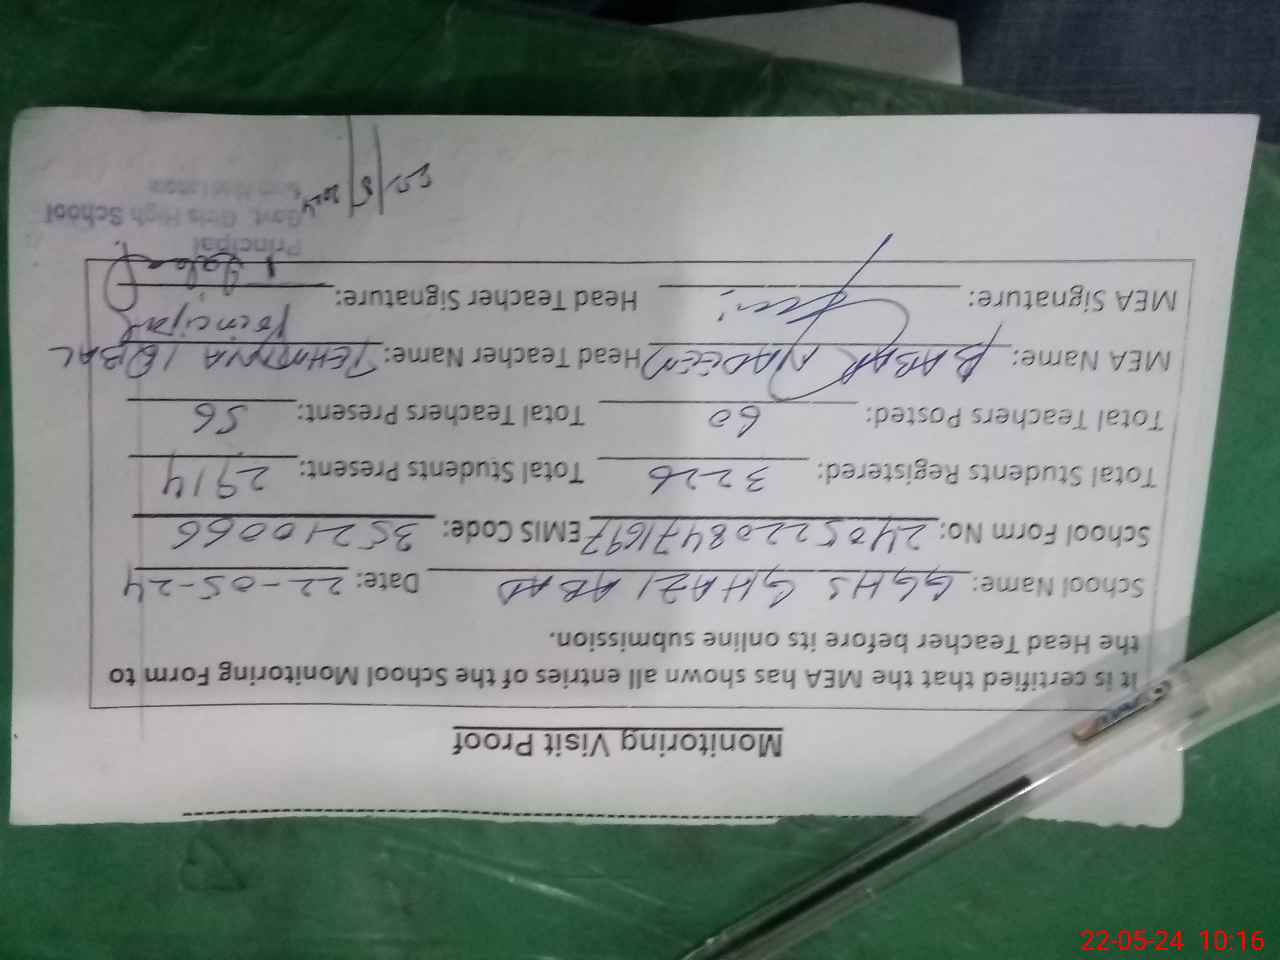 Monitoring Visit Proof
It is certified that the MEA has shown all entries of the School Monitoring Form to
the Head Teacher before its online submission.
School Name: GGHS GHAZI ABAD Date: 22-05-24
School Form No: 24052208471697 EMIS Code: 35210066
Total Students Registered: 3226 Total Students Present: 2914
Total Teachers Posted: 60 Total Teachers Present: 56
MEA Name: BABAR NADEEM Head Teacher Name: TEHMINA IQBAL
Principal
MEA Signature: Head Teacher Signature:
Principal
Govt. Girls High School
22/5/2024
22-05-24 10:16